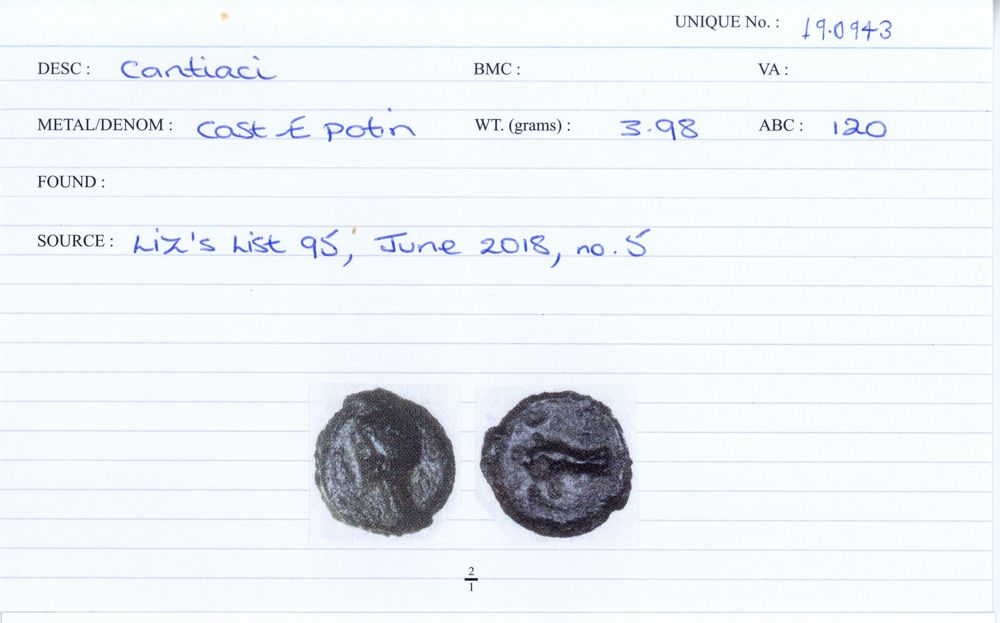 UNIQUE No. : 19.0943
DESC : Cantiaci BMC : VA :
METAL/DENOM : Cast Æ potin WT. (grams) : 3.98 ABC : 120
FOUND :
SOURCE : Liz's List 95, June 2018, no. 5
2
1